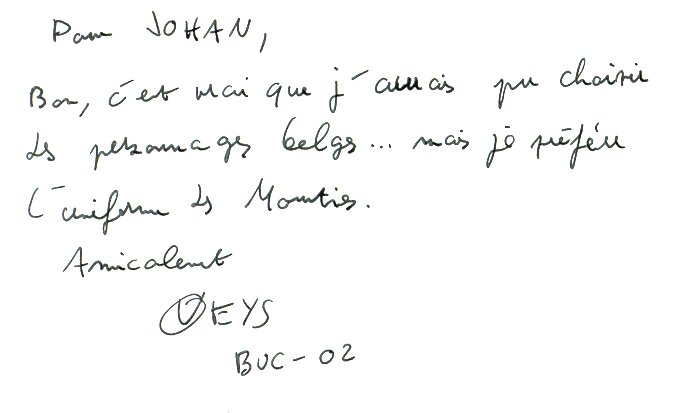 Pour JOHAN,
Bon, c'est vrai que j'aurais pu choisir
des personnages belges... mais je préfère
l'uniforme des Mounties.
Amicalement
VEYS
BUC-02